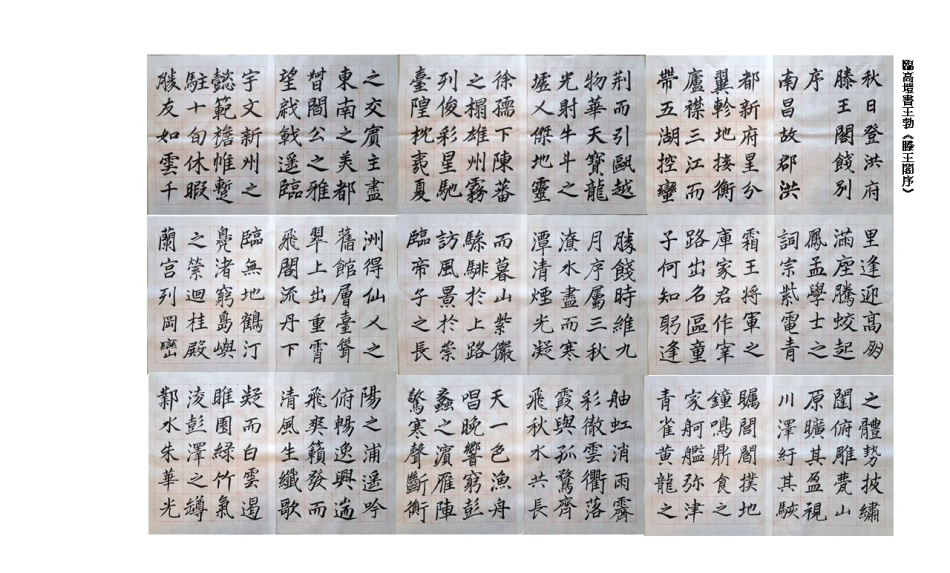 臨高塏書王勃《滕王閣序》
秋日登洪府
滕王閣餞別
序
南昌故郡洪
都新府星分
翼軫地接衡
廬襟三江而
帶五湖控蠻
荆而引甌越
物華天寶龍
光射牛斗之
墟人傑地靈
徐孺下陳蕃
之榻雄州霧
列俊彩星馳
臺隍枕夷夏
之交賓主盡
東南之美都
督閻公之雅
望棨戟遥臨
宇文新州之
懿範襜帷蹔
駐十旬休暇
勝友如雲千
里逢迎高朋
滿座騰蛟起
鳳孟學士之
詞宗紫電青
霜王將軍之
庫家君作宰
路出名區童
子何知躬逢
勝餞時維九
月序屬三秋
潦水盡而寒
潭清煙光凝
而暮山紫儼
驂騑於上路
訪風景於崇
臨帝子之長
洲得仙人之
舊館層臺聳
翠上出重霄
飛閣流丹下
臨無地鶴汀
鳧渚窮島嶼
之縈迴桂殿
蘭宫列岡巒
之體勢披繡
闥俯雕甍山
原曠其盈視
川澤紆其駭
矚閭閻撲地
鐘鳴鼎食之
家舸艦弥津
青雀黄龍之
舳虹消雨霽
彩徹雲衢落
霞與孤鶩齊
飛秋水共長
天一色漁舟
唱晚響窮彭
蠡之濱雁陣
驚寒聲斷衡
陽之浦遥吟
俯暢逸興遄
飛爽籟發而
清風生纖歌
凝而白雲遏
睢園緑竹氣
淩彭澤之罇
鄴水朱華光